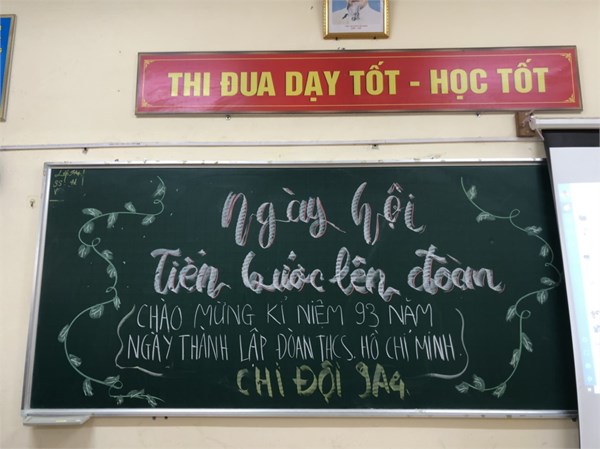 THI ĐUA DẠY TỐT - HỌC TỐT
Ngày hội
Tiến bước lên đoàn
CHÀO MỪNG KỈ NIỆM 93 NĂM
NGÀY THÀNH LẬP ĐOÀN THCS. HỒ CHÍ MINH.
CHI ĐỘI 9A4